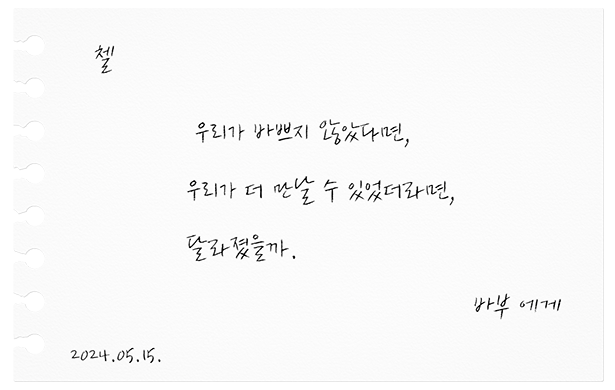 첼
우리가 바쁘지 않았다면,
우리가 더 만날 수 있었더라면,
달라졌을까.
바부 에게
2024.05.15.